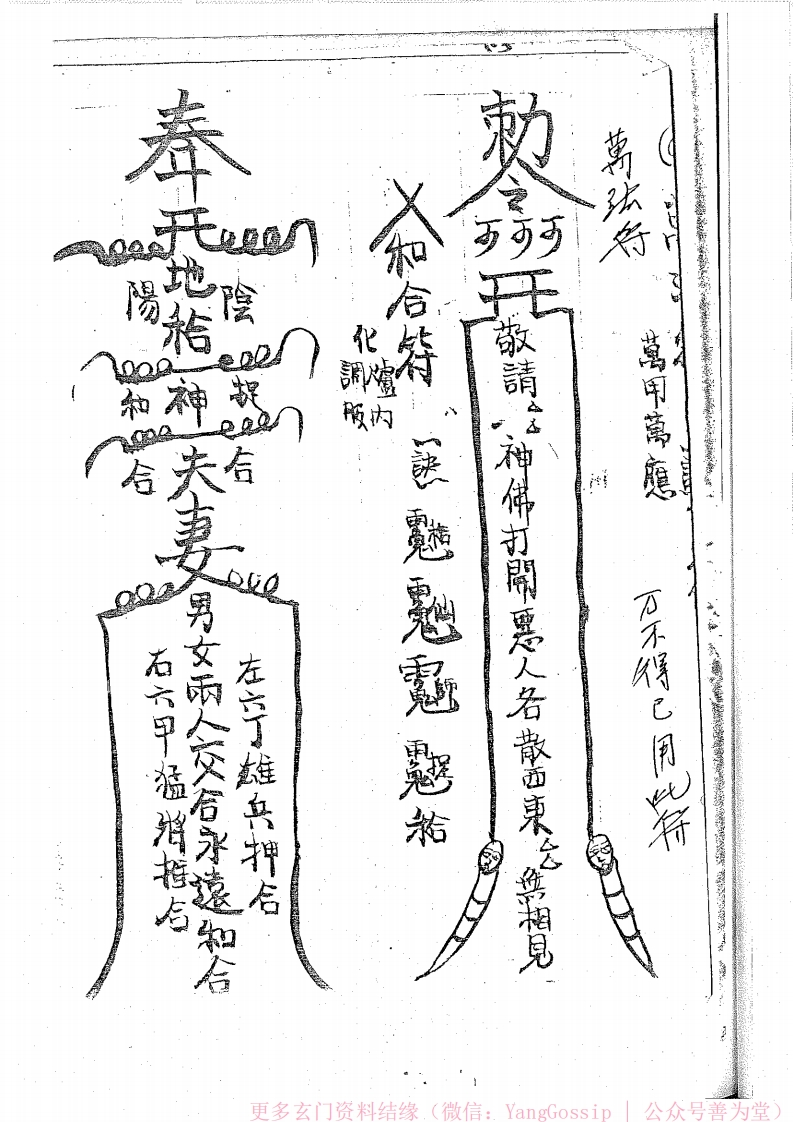 萬法符
萬用萬應
万不得已用此符
勅令
可可可
敬請厶厶神佛打開惡人各散西東厶厶無相見
和合符
化爐內
調版
訣
奉
地
陰
陽
神
捉
和
夫妻
合
合
男女兩人交合永遠和合
左六丁雄兵押合
右六甲猛將推合
更多玄门资料结缘（微信：YangGossip | 公众号善为堂）